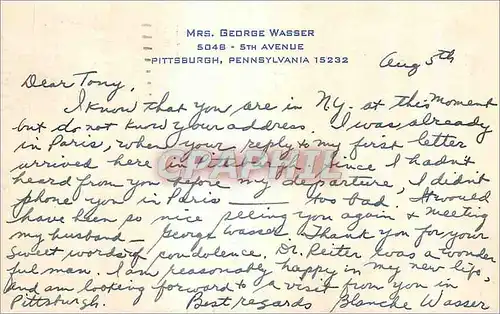 MRS. GEORGE WASSER
5048 - 5TH AVENUE
PITTSBURGH, PENNSYLVANIA 15232
Aug 5th
Dear Tony,
I know that you are in NY. at this moment
but do not know your address. I was already
in Paris, when your reply to my first letter
arrived here in Since I hadn't
heard from you before my departure, I didn't
phone you in Paris —— too bad. It would
have been so nice seeing you again & meeting
my husband — George Wasser. Thank you for your
sweet words of condolence. Dr. Reiter was a wonder
ful man. I am reasonably happy in my new life,
and am looking forward to a visit from you in
Pittsburgh. Best regards Blanche Wasser
CPARHTI